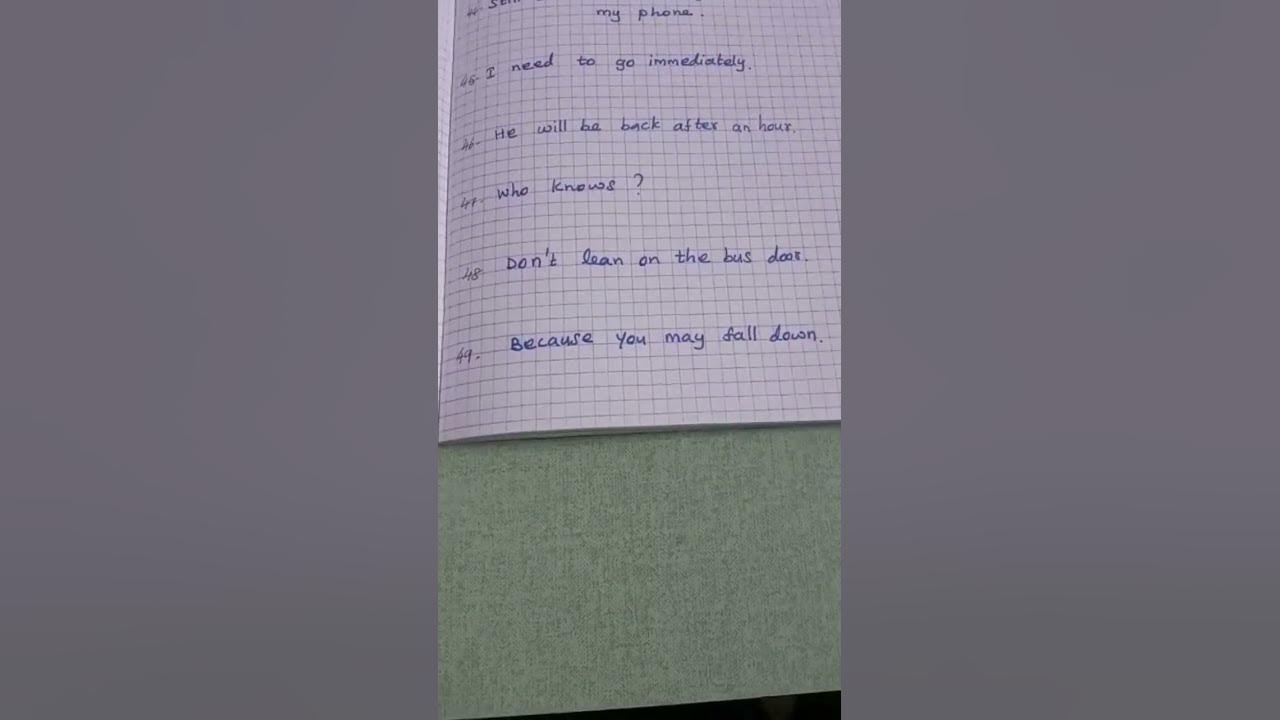 44-
my phone.
45- I need to go immediately.
46- He will be back after an hour.
47- Who knows ?
48- Don't lean on the bus door.
49. Because you may fall down.